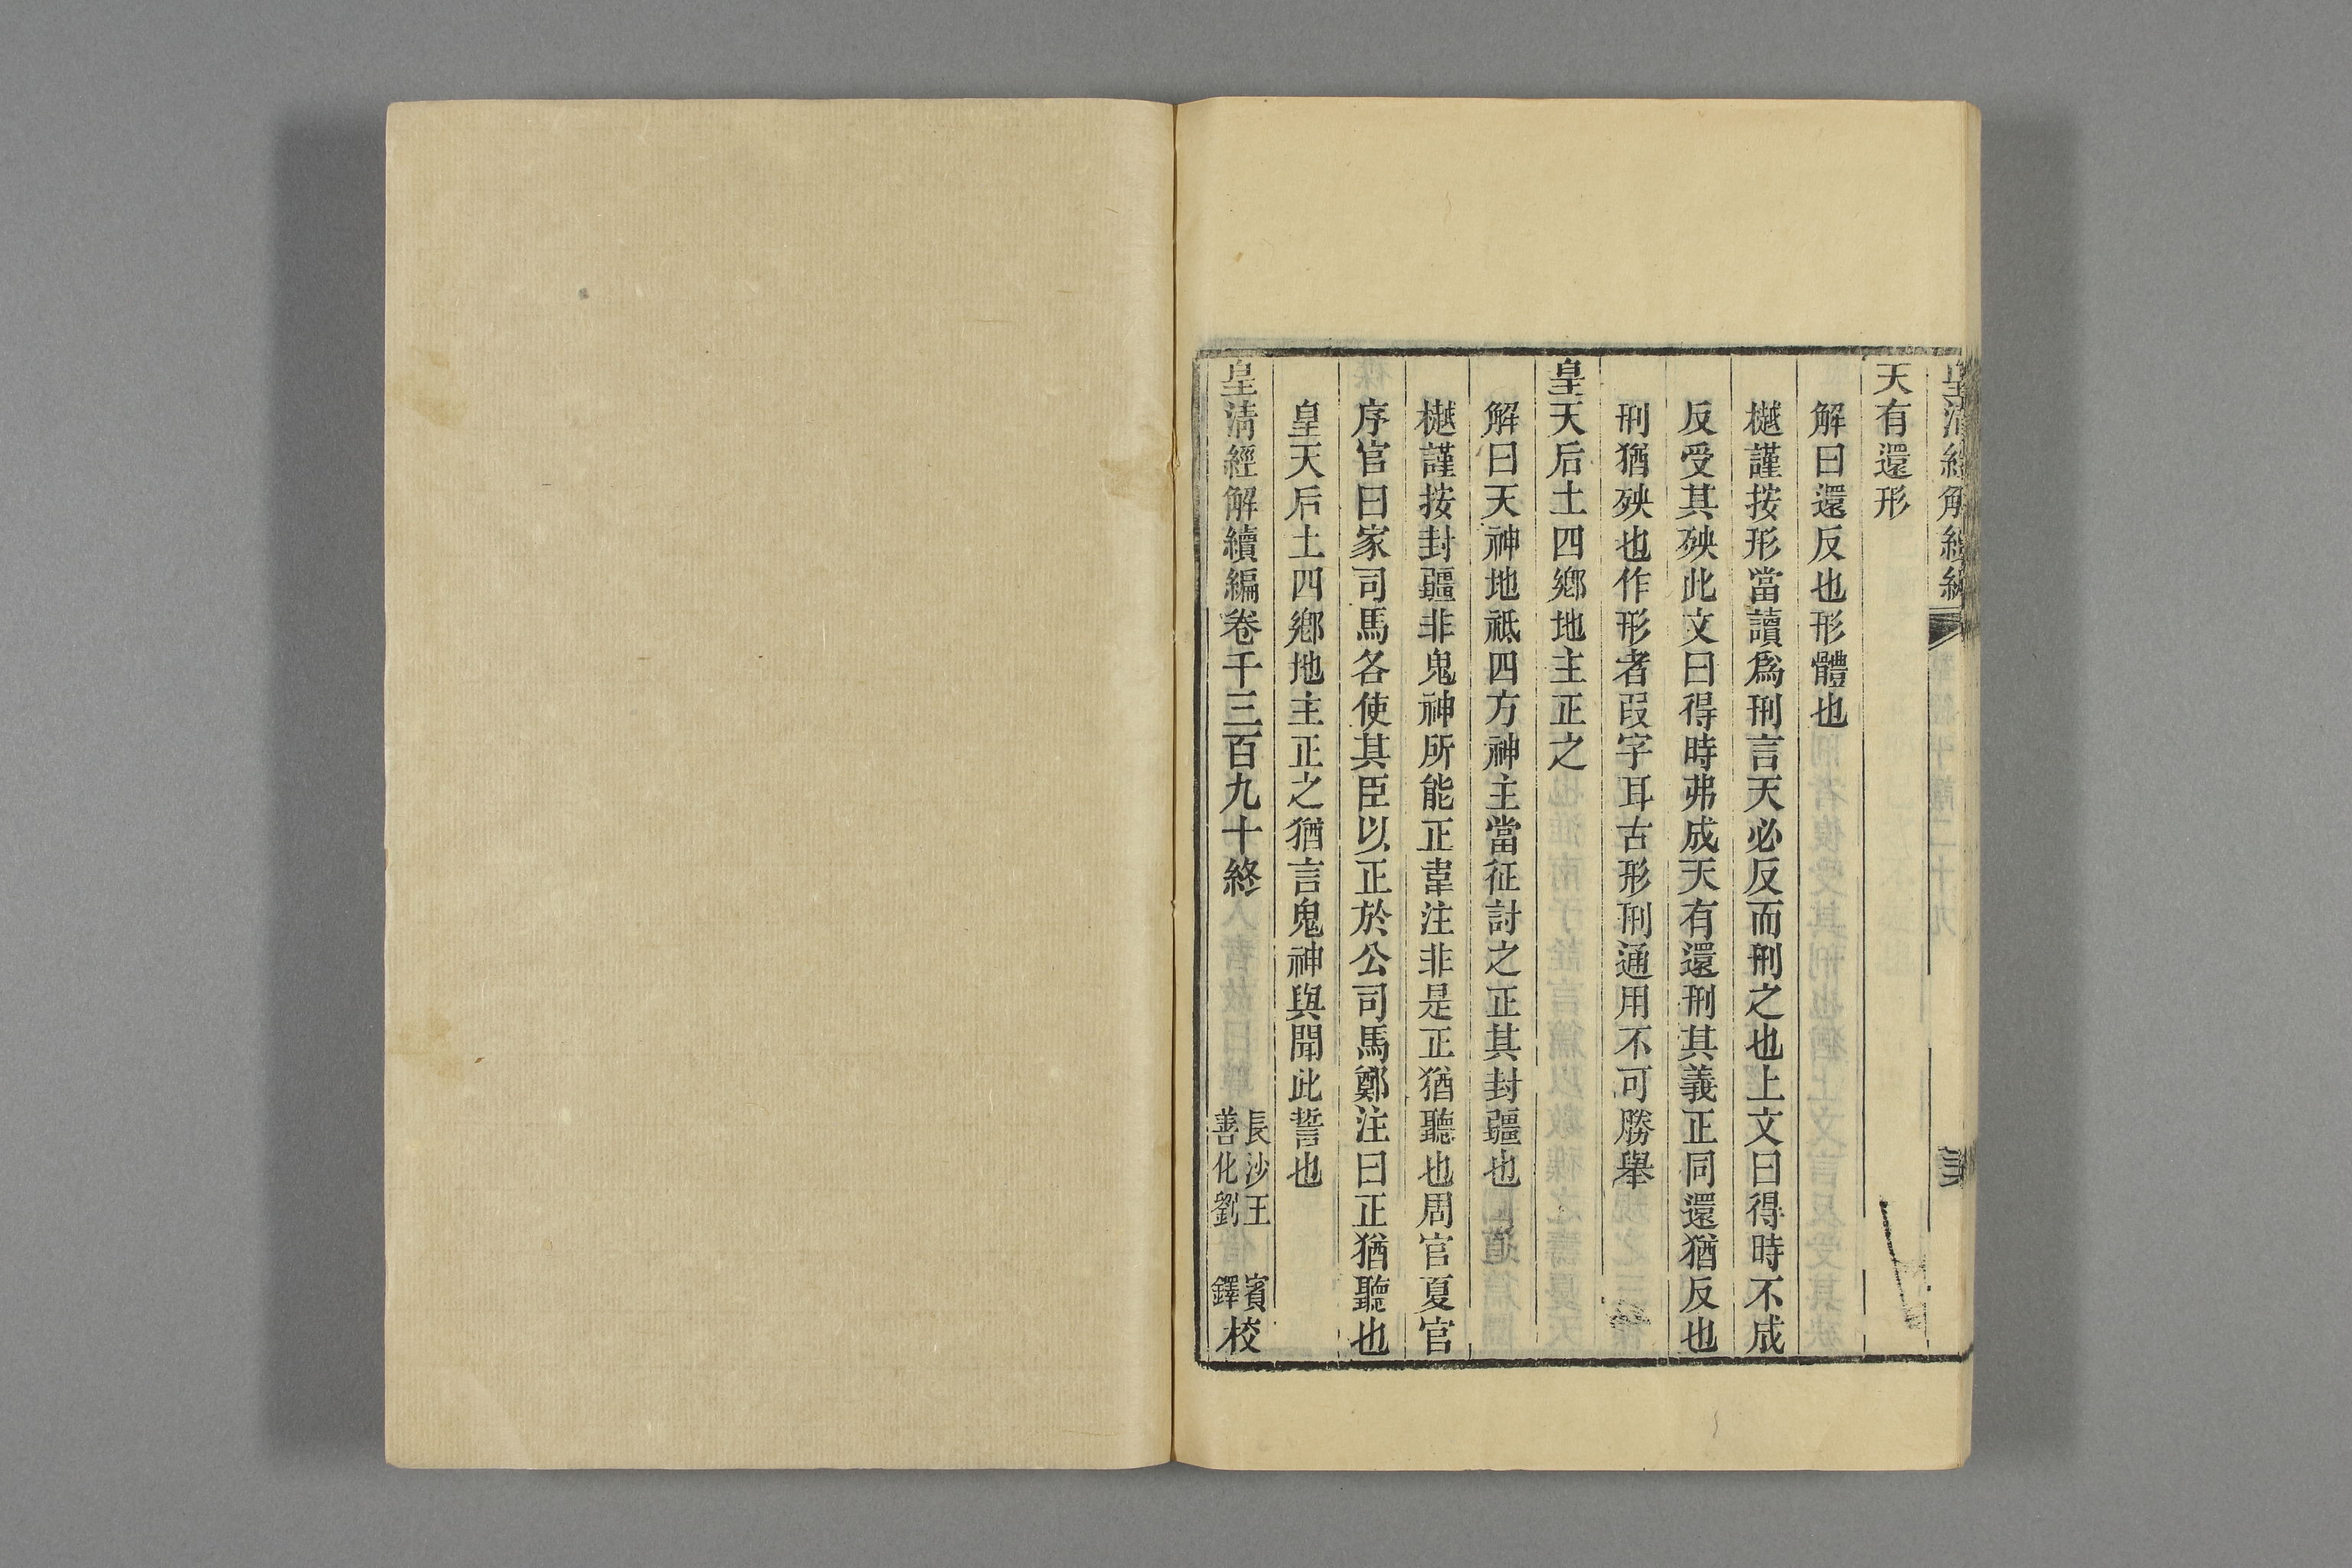 皇清經解續編
天有還形
解曰還反也形體也
樾謹按形當讀爲刑言天必反而刑之也上文曰得時不成
反受其殃此文曰得時弗成天有還刑其義正同還猶反也
刑猶殃也作形者叚字耳古形刑通用不可勝舉
皇天后土四鄉地主正之
解曰天神地祇四方神主當征討之正其封疆也
樾謹按封疆非鬼神所能正韋注非是正猶聽也周官夏官
序官曰家司馬各使其臣以正於公司馬鄭注曰正猶聽也
皇天后土四鄉地主正之猶言鬼神與聞此誓也
皇清經解續編卷千三百九十終
長沙王 賓
善化劉 鐸
校